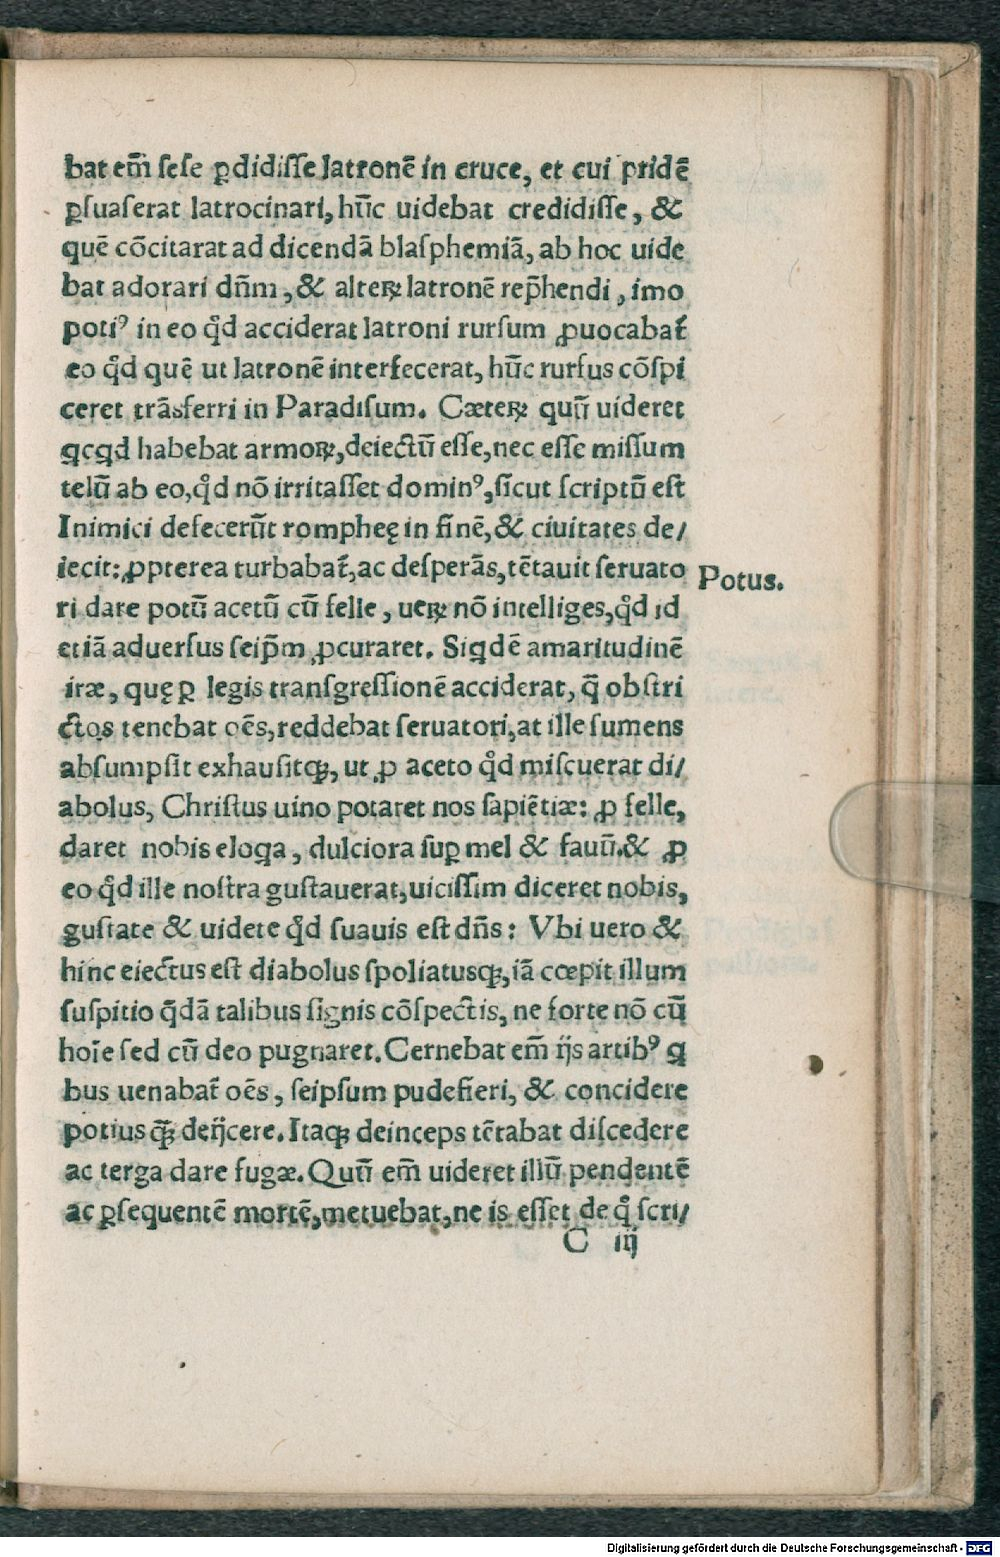 bat em̃ ſeſe ꝑdidiſſe latronẽ in cruce, et cui pridẽ
ꝑſuaſerat latrocinari, hũc uidebat credidiſſe, &
quẽ cõcitarat ad dicendã blaſphemiã, ab hoc uide
bat adorari dñm, & alteꝝ latronẽ rep̃hendi, imo
potiꝰ in eo qͦd acciderat latroni rurſum ꝓuocabat̃
eo qͦd quẽ ut latronẽ interfecerat, hũc rurſus cõſpi
ceret trãſferri in Paradiſum. Cæteꝝ quũ uideret
ꝗcꝗd habebat armoꝝ, deiectũ eſſe, nec eſſe miſſum
telũ ab eo, qͦd nõ irritaſſet dominꝰ, ſicut ſcriptũ eſt
Inimici defecerũt rompheę in finẽ, & ciuitates de/
iecit: ꝓpterea turbabat̃, ac deſperãs, tẽtauit ſeruato
ri dare potũ acetũ cũ felle, ueꝝ nõ intelliges, qͦd id
etiã aduerſus ſeip̃m ꝓcuraret. Siꝗdẽ amaritudinẽ
iræ, quę ꝑ legis tranſgreſſionẽ acciderat, q̃ obſtri
ctos tenebat oẽs, reddebat ſeruatori, at ille ſumens
abſumpſit exhauſitqꝫ, ut ꝓ aceto qͦd miſcuerat di/
abolus, Chriſtus uino potaret nos ſapiẽtiæ: ꝓ felle,
daret nobis eloꝗa, dulciora ſuꝑ mel & fauũ. & ꝓ
eo qͦd ille noſtra guſtauerat, uiciſſim diceret nobis,
guſtate & uidete qͦd ſuauis eſt dñs: Vbi uero &
hinc eiectus eſt diabolus ſpoliatusqꝫ, iã cœpit illum
ſuſpitio q̃dã talibus ſignis cõſpectis, ne forte nõ cũ
hoĩe ſed cũ deo pugnaret. Cernebat em̃ ijs artibꝰ ꝗ
bus uenabat̃ oẽs, ſeipſum pudefieri, & concidere
potius qꝫ̃ deijcere. Itaqꝫ deinceps tẽtabat diſcedere
ac terga dare fugæ. Quũ em̃ uideret illũ pendentẽ
ac ꝑſequentẽ mortẽ, metuebat, ne is eſſet de qͦ ſcri/
C iij
Potus.
Digitalisierung gefördert durch die Deutsche Forschungsgemeinschaft - DFG